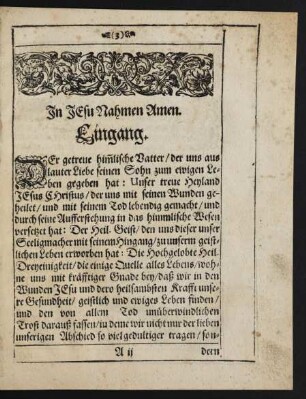 (3)
In JEsu Nahmen Amen.
Eingang.
DEr getreue him̃lische Vatter / der uns aus
lauter Liebe seinen Sohn zum ewigen Le-
ben gegeben hat: Unser treue Heyland
JEsus CHristus / der uns mit seinen Wunden ge-
heilet / und mit seinem Tod lebendig gemacht / und
durch seine Aufferstehung in das himmlische Wesen
versetzet hat: Der Heil. Geist / den uns dieser unser
Seeligmacher mit seinem Hingang / zu unserm geist-
lichen Leben erworben hat: Die Hochgelobte Heil.
Dreyeinigkeit / die einige Quelle alles Lebens / woh-
ne uns mit kräfftiger Gnade bey / daß wir in den
Wunden JEsu und dero heilsambsten Krafft unse-
re Gesundheit / geistlich und ewiges Leben finden /
und den von allem Tod unüberwindlichen
Trost darauß fassen / in deme wir nicht nur der lieben
unserigen Abschied so viel gedultiger tragen / son-
A ij
dern